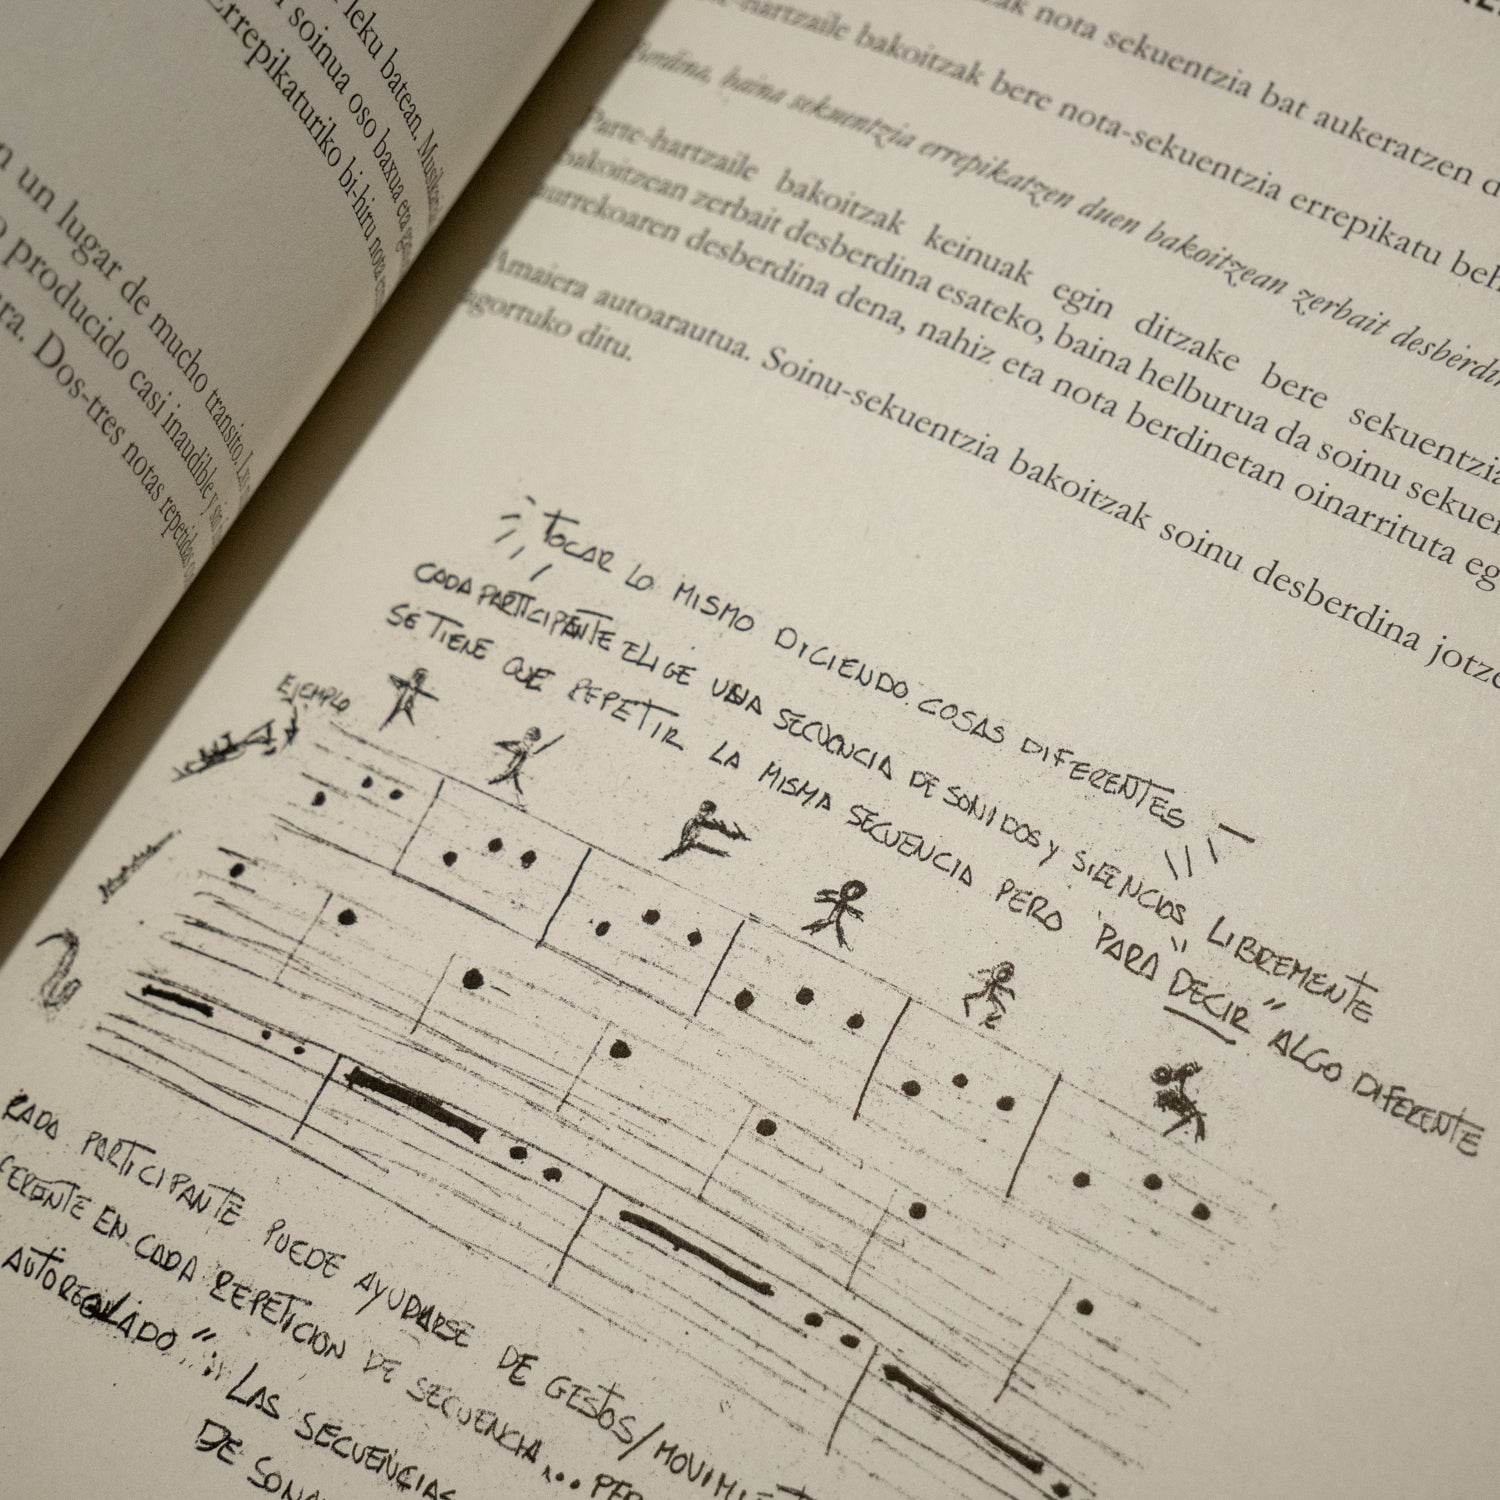 leku batean. Musikaria
soinua oso baxua eta
Errepikaturiko bi-hiru nota
n un lugar de mucho transito. Los
o producido casi inaudible y sin
ra. Dos-tres notas repetidas
nota sekuentzia bat aukeratzen d
-hartzaile bakoitzak bere nota-sekuentzia errepikatu beh
Berdina, baina sekuentzia errepikatzen duen bakoitzean zerbait desberdin
Parte-hartzaile bakoitzak keinuak egin ditzake bere sekuentzia
bakoitzean zerbait desberdina esateko, baina helburua da soinu sekuen
aurrekoaren desberdina dena, nahiz eta nota berdinetan oinarrituta eg
Amaiera autoarautua. Soinu-sekuentzia bakoitzak soinu desberdina jotze
agortuko ditu.
TOCAR LO MISMO DICIENDO COSAS DIFERENTES
CADA PARTICIPANTE ELIGE UNA SECUENCIA DE SONIDOS y SILENCIOS LIBREMENTE
SE TIENE QUE REPETIR LA MISMA SECUENCIA PERO PARA "DECIR" ALGO DIFERENTE
EJEMPLO
CADA PARTICIPANTE PUEDE AYUDARSE DE GESTOS/MOVIMIE
FERENTE EN CADA REPETICION DE SECUENCIA... PER
AUTOREGULADO" LAS SECUENCIAS
DE SONI